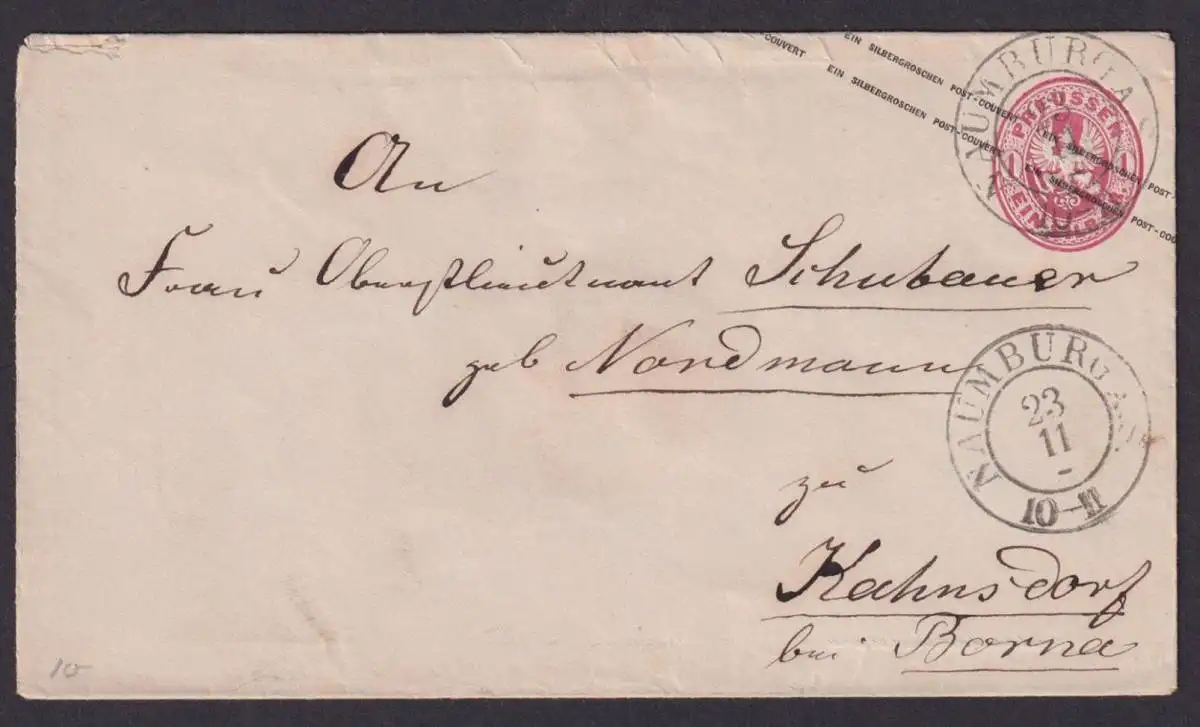 EIN SILBERGROSCHEN POST-COUVERT EIN SILBERGROSCHEN POST-
EIN SILBERGROSCHEN POST-COUVERT EIN SILBERGROSCHEN POST-COU
-COUVERT
PREUSSEN
1 1
NAUMBURG A S
An
Frau Oberstlieutnant Schubauer
geb Nordmann
NAUMBURG
23
11
10-11
zu
Kahnsdorf
bei Borna
10